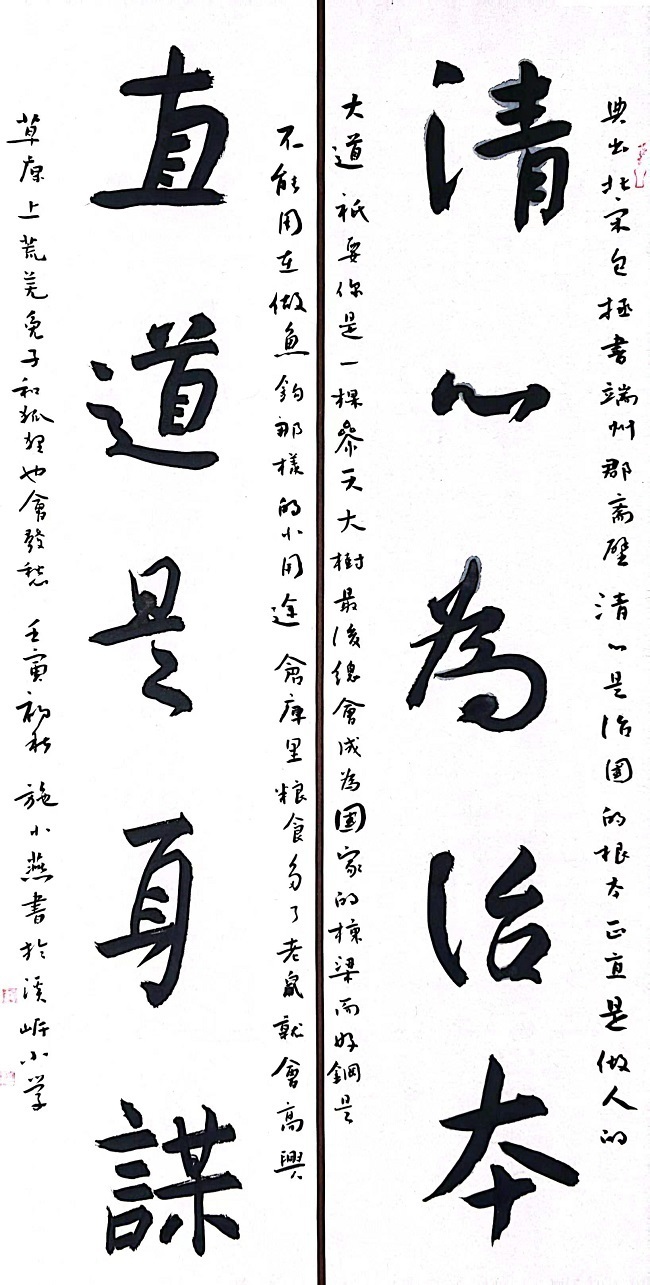 典出北宋包拯書端州郡齋壁 清心是治國的根本正直是做人的
清心為治本
大道 祇要你是一棵參天大樹最後總會成為國家的棟梁而好鋼是
不能用在做魚鈎那樣的小用途 倉庫里粮食多了老鼠就會高興
直道是身謀
草原上荒蕪兔子和狐狸也會發愁 壬寅初秋 施小燕書於溪㟁小学